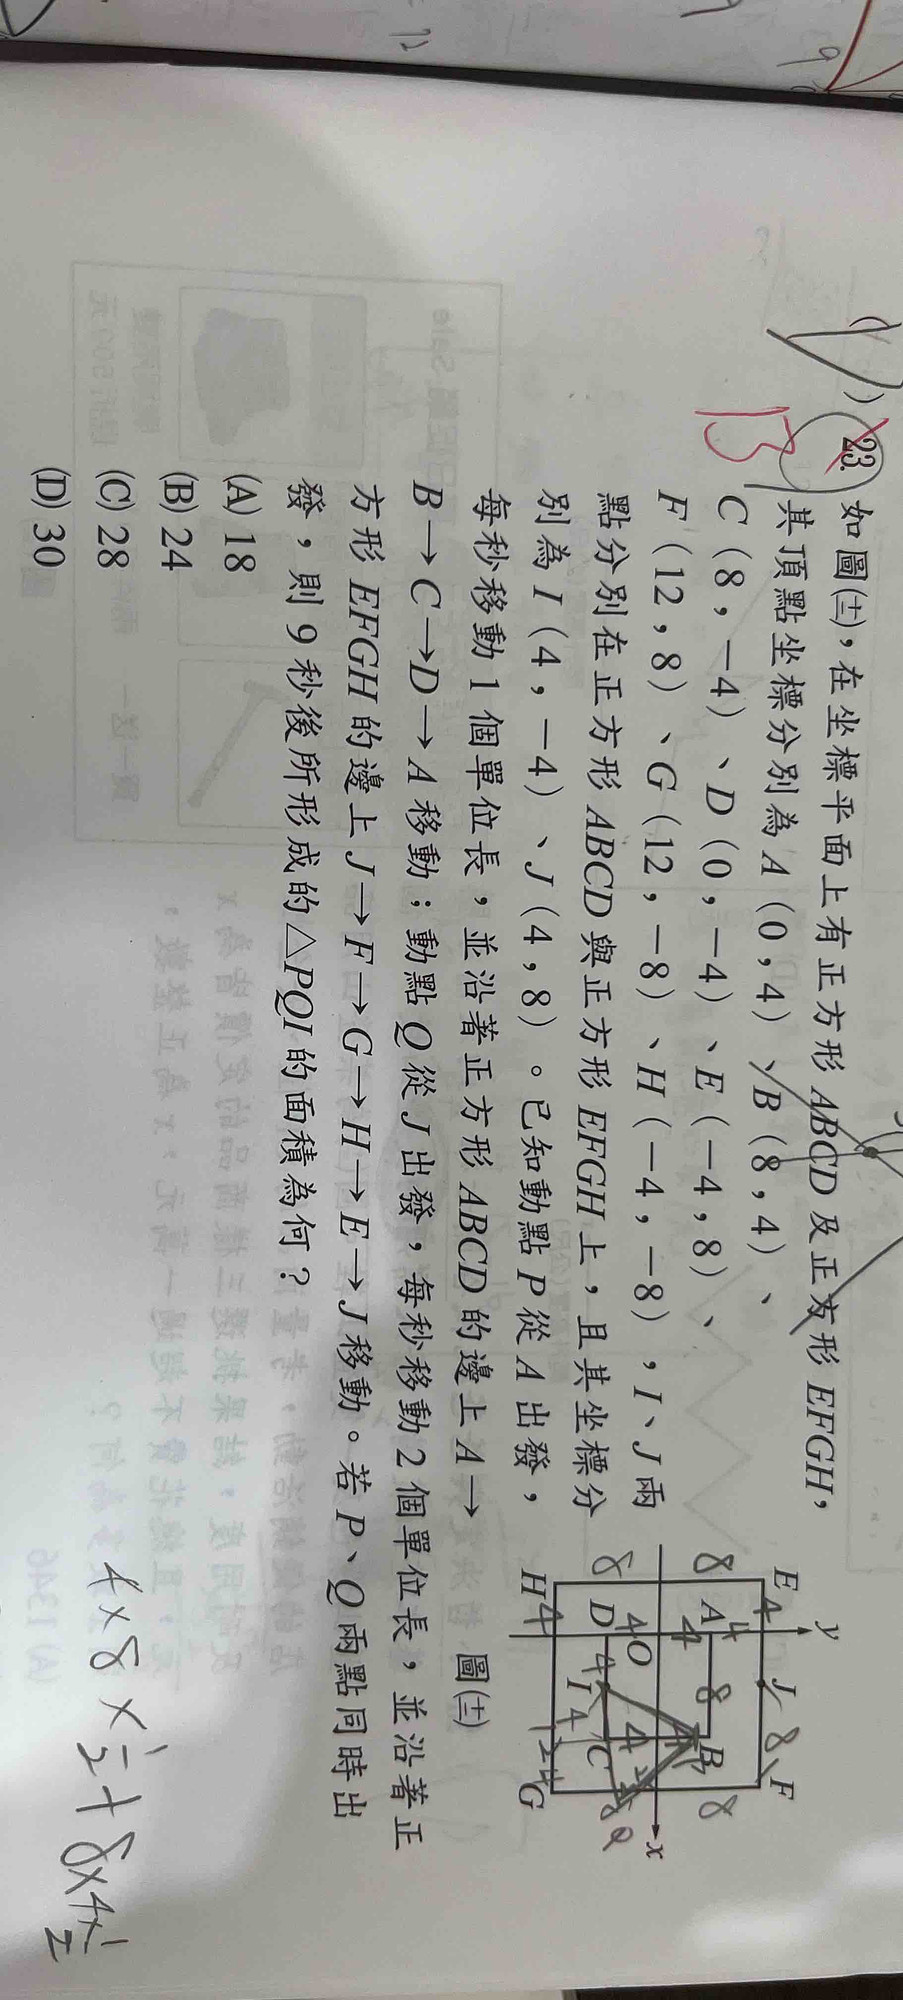 23. 如圖(十三)，在坐標平面上有正方形 ABCD 及正方形 EFGH，
其頂點坐標分別為 A（0，4）、B（8，4）、
C（8，−4）、D（0，−4）、E（−4，8）、
F（12，8）、G（12，−8）、H（−4，−8），I、J 兩
點分別在正方形 ABCD 與正方形 EFGH 上，且其坐標分
別為 I（4，−4）、J（4，8）。已知動點 P 從 A 出發，
每秒移動 1 個單位長，並沿著正方形 ABCD 的邊上 A→
B→C→D→A 移動；動點 Q 從 J 出發，每秒移動 2 個單位長，並沿著正
方形 EFGH 的邊上 J→F→G→H→E→J 移動。若 P、Q 兩點同時出
發，則 9 秒後所形成的 △PQI 的面積為何？
(A) 18
(B) 24
(C) 28
(D) 30
13
y
E 4 J 8 F
8 A 4 8 B 8
4
O x
4 4 4 2
8 D 4 I 4 C 8 Q
H 4 12 4 G
圖(十三)
4×8×1/2+8×4×1/2